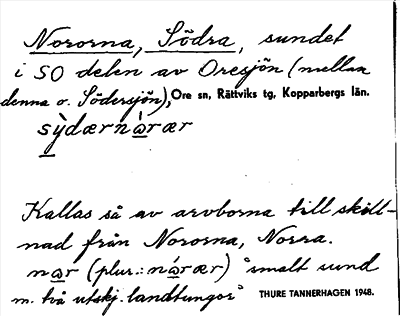 Nororna, Södra, sundet
i SO delen av Oresjön (mellan
denna o. Södersjön), Ore sn, Rättviks tg, Kopparbergs län.
sỳdærnàrær
Kallas så av arvborna till skill-
nad från Nororna, Norra.
nar (plur.: nàrær) "smalt sund
m. två utskj. landtungor"
THURE TANNERHAGEN 1948.